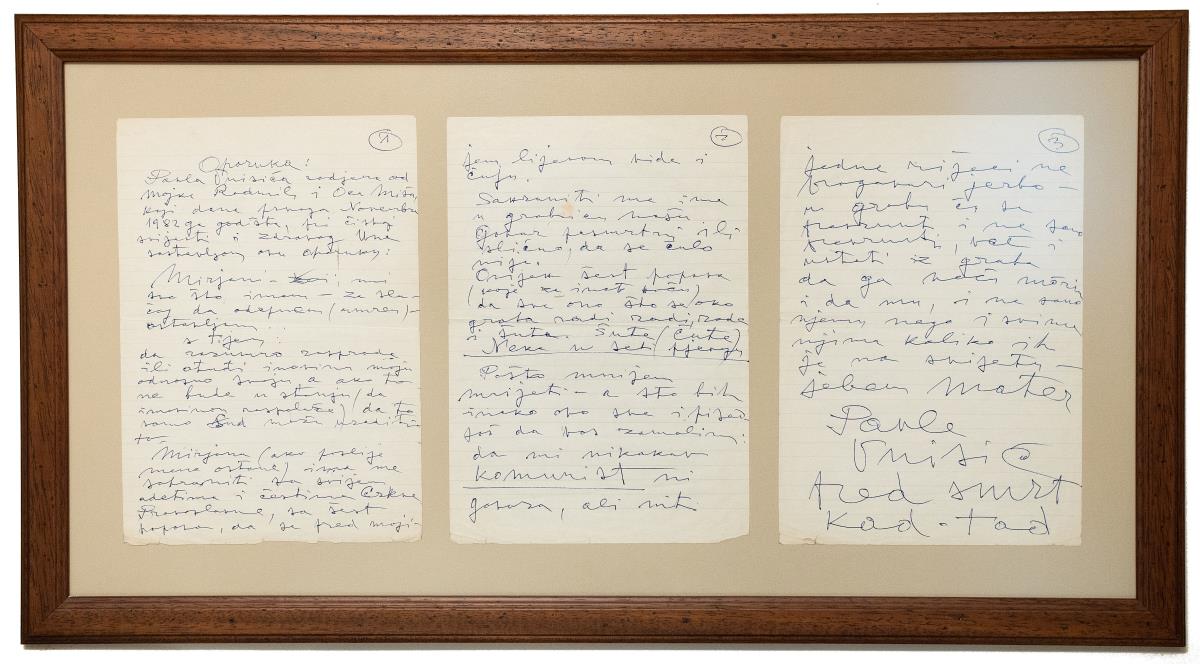 1
Oporuka:
Pavla Vuisića rodjena od
majke Radmile i Oca Miše,
koji dana prvoga Novembra
1982 ga godišta, pri čistoj
svijesti i zdravog Uma
sastavljam ovu oporuku:
Mirjani - mi
sve što imam - za slu-
čaj da odapnem (umrem) -
ostavljam.
s tijem:
da razumno rasproda
ili otudi imovinu moju
odnosno svoju a ako to
ne bude u stanju (da
imovinu raspolaže) da to
samo Sud može urediti
to
Mirjana (ako poslije
mene ostane) ima me
sahraniti sa svijem
adetima i čestima Crkve
Pravoslavne, sa šest
popova, da se pred moji-
2
jem lijesom vide i
čuju.
Sahraniti me ima
u grobnicu našu.
Govor posmrtni ili
slično, da se čulo
nije.
Ovijem šest popova
(svoje za inat)
da sve ono što se oko
groba radi radi, rade
i šute. Šute (ćute)
Neka u sebi pjevaju
Pošto mnijem
mrijeti - a što bih
inako ovo sve i pisao
još da vas zamolim:
da mi nikakav
komunist ni
govora, ali niti
3
jedne riječi ne
progovori, jerbo -
u grobu ću se
prevrnuti i ne samo
prevrnuti, već i
ustati iz groba
da ga noću morim
i da mu, i ne samo
njemu nego i svima
njima koliko ih
je na svijetu -
jebem mater
Pavle
Vuisić
pred smrt
kad-tad